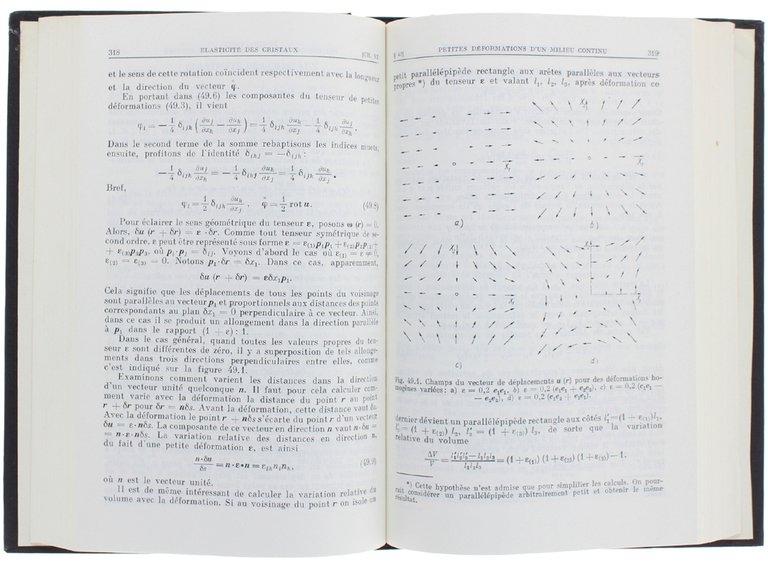 318 ELASTICITÉ DES CRISTAUX [CH. VI
et le sens de cette rotation coïncident respectivement avec la longueur
et la direction du vecteur φ.
En portant dans (49.6) les composantes du tenseur de petites
déformations (49.3), il vient
φᵢ = — 1/4 δᵢⱼₕ (∂uⱼ/∂xₕ — ∂uₕ/∂xⱼ) = 1/4 δᵢⱼₕ ∂uₕ/∂xⱼ — 1/4 δᵢⱼₕ ∂uⱼ/∂xₕ.
Dans le second terme de la somme rebaptisons les indices muets;
ensuite, profitons de l'identité δᵢₕⱼ = —δᵢⱼₕ:
— 1/4 δᵢⱼₕ ∂uⱼ/∂xₕ = — 1/4 δᵢₕⱼ ∂uₕ/∂xⱼ = 1/4 δᵢⱼₕ ∂uₕ/∂xⱼ.
Bref,
φᵢ = 1/2 δᵢⱼₕ ∂uₕ/∂xⱼ , φ = 1/2 rot u. (49.8)
Pour éclairer le sens géométrique du tenseur ε, posons ω (r) = 0.
Alors, δu (r + δr) = ε·δr. Comme tout tenseur symétrique de se-
cond ordre, ε peut être représenté sous forme ε = ε₍₁₎p₁p₁ + ε₍₂₎p₂p₂ +
+ ε₍₃₎p₃p₃, où pᵢ·pⱼ = δᵢⱼ. Voyons d'abord le cas où ε₍₁₎ = ε ≠ 0,
ε₍₂₎ = ε₍₃₎ = 0. Notons p₁·δr = δx₁. Dans ce cas, apparemment,
δu (r + δr) = εδx₁p₁.
Cela signifie que les déplacements de tous les points du voisinage
sont parallèles au vecteur p₁ et proportionnels aux distances des points
correspondants au plan δx₁ = 0 perpendiculaire à ce vecteur. Ainsi,
dans ce cas il se produit un allongement dans la direction parallèle
à p₁ dans le rapport (1 + ε) : 1.
Dans le cas général, quand toutes les valeurs propres du ten-
seur ε sont différentes de zéro, il y a superposition de tels allonge-
ments dans trois directions perpendiculaires entre elles, comme
c'est indiqué sur la figure 49.1.
Examinons comment varient les distances dans la direction
d'un vecteur unité quelconque n. Il faut pour cela calculer com-
ment varie avec la déformation la distance du point r au point
r + δr pour δr = nδs. Avant la déformation, cette distance vaut δs.
Avec la déformation le point r + nδs s'écarte du point r d'un vecteur
δu = ε·nδs. La composante de ce vecteur en direction n vaut n·δu =
= n·ε·nδs. La variation relative des distances en direction n,
du fait d'une petite déformation ε, est ainsi
n·δu/δs = n·ε·n = εᵢₕnᵢnₕ, (49.9)
où n est le vecteur unité.
Il est de même intéressant de calculer la variation relative du
volume avec la déformation. Si au voisinage du point r on isole un
§ 49] PETITES DÉFORMATIONS D'UN MILIEU CONTINU 319
petit parallélépipède rectangle aux arêtes parallèles aux vecteurs
propres *) du tenseur ε et valant l₁, l₂, l₃, après déformation ce
X₂
X₁ X₁
a) b)
X₂ X₂
X₁ X₁
c) d)
Fig. 49.1. Champs du vecteur de déplacements u (r) pour des déformations ho-
mogènes variées: a) ε = 0,2 e₁e₁, b) ε = 0,2 (e₁e₁ + e₂e₂), c) ε = 0,2 (e₁e₁ —
— e₂e₂), d) ε = 0,2 (e₁e₂ + e₂e₁).
dernier devient un parallélépipède rectangle aux côtés l₁′=(1 + ε₍₁₎)l₁,
l₂′ = (1 + ε₍₂₎) l₂, l₃′ = (1 + ε₍₃₎) l₃, de sorte que la variation
relative du volume
ΔV/V = (l₁′l₂′l₃′ — l₁l₂l₃)/(l₁l₂l₃) = (1 + ε₍₁₎) (1 + ε₍₂₎) (1 + ε₍₃₎) — 1.
*) Cette hypothèse n'est admise que pour simplifier les calculs. On pour-
rait considérer un parallélépipède arbitrairement petit et obtenir le même
résultat.